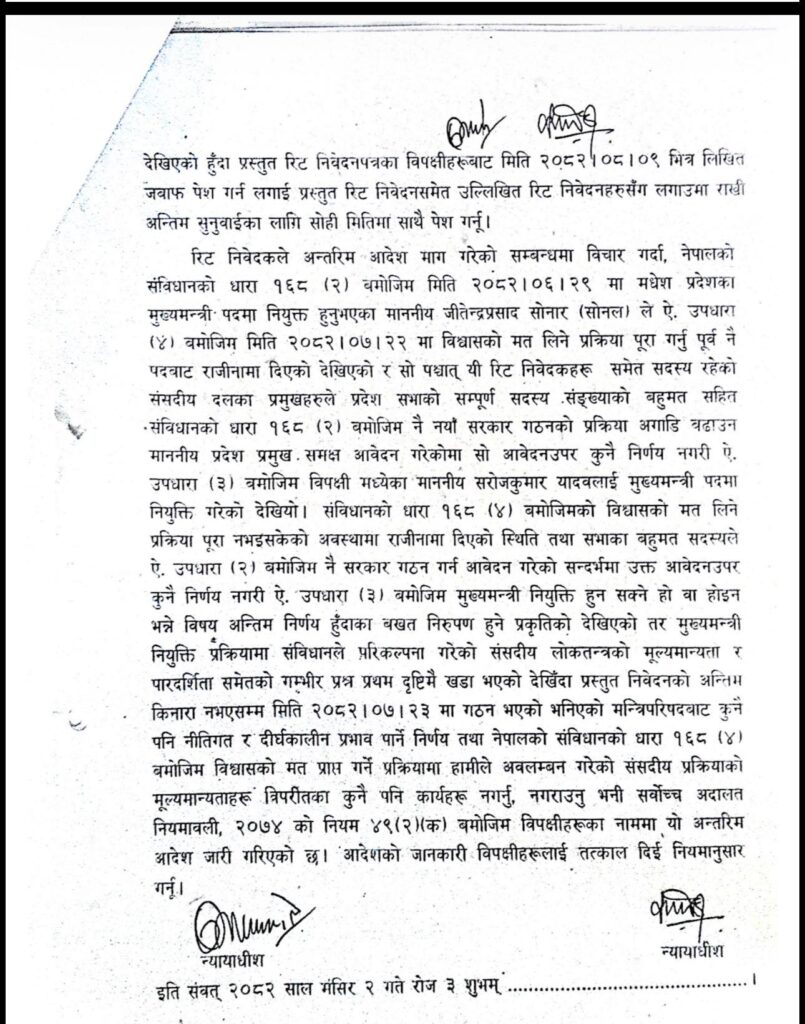 देखिएको हुँदा प्रस्तुत रिट निवेदनपत्रका विपक्षीहरूबाट मिति २०८२।०८।०९ भित्र लिखित
जवाफ पेश गर्न लगाई प्रस्तुत रिट निवेदनसमेत उल्लिखित रिट निवेदनहरुसँग लगाउमा राखी
अन्तिम सुनुवाईका लागि सोही मितिमा साथै पेश गर्नू।
रिट निवेदकले अन्तरिम आदेश माग गरेको सम्बन्धमा विचार गर्दा, नेपालको
संविधानको धारा १६८ (२) बमोजिम मिति २०८२।०६।२९ मा मधेश प्रदेशका
मुख्यमन्त्री पदमा नियुक्त हुनुभएका माननीय जीतेन्द्रप्रसाद सोनार (सोनल) ले ऐ. उपधारा
(४) बमोजिम मिति २०८२।०७।२२ मा विश्वासको मत लिने प्रक्रिया पूरा गर्नु पूर्व नै
पदबाट राजीनामा दिएको देखिएको र सो पश्चात् यी रिट निवेदकहरू समेत सदस्य रहेको
संसदीय दलका प्रमुखहरुले प्रदेश सभाको सम्पूर्ण सदस्य सङ्ख्याको बहुमत सहित
संविधानको धारा १६८ (२) बमोजिम नै नयाँ सरकार गठनको प्रक्रिया अगाडि बढाउन
माननीय प्रदेश प्रमुख समक्ष आवेदन गरेकोमा सो आवेदनउपर कुनै निर्णय नगरी ऐ.
उपधारा (३) बमोजिम विपक्षी मध्येका माननीय सरोजकुमार यादवलाई मुख्यमन्त्री पदमा
नियुक्ति गरेको देखियो। संविधानको धारा १६८ (४) बमोजिमको विश्वासको मत लिने
प्रक्रिया पूरा नभइसकेको अवस्थामा राजीनामा दिएको स्थिति तथा सभाका बहुमत सदस्यले
ऐ. उपधारा (२) बमोजिम नै सरकार गठन गर्न आवेदन गरेको सन्दर्भमा उक्त आवेदनउपर
कुनै निर्णय नगरी ऐ. उपधारा (३) बमोजिम मुख्यमन्त्री नियुक्ति हुन सक्ने हो वा होइन
भन्ने विषय अन्तिम निर्णय हुँदाका बखत निरुपण हुने प्रकृतिको देखिएको तर मुख्यमन्त्री
नियुक्ति प्रक्रियामा संविधानले परिकल्पना गरेको संसदीय लोकतन्त्रको मूल्यमान्यता र
पारदर्शिता समेतको गम्भीर प्रश्न प्रथम दृष्टिमै खडा भएको देखिँदा प्रस्तुत निवेदनको अन्तिम
किनारा नभएसम्म मिति २०८२।०७।२३ मा गठन भएको भनिएको मन्त्रिपरिषदबाट कुनै
पनि नीतिगत र दीर्घकालीन प्रभाव पार्ने निर्णय तथा नेपालको संविधानको धारा १६८ (४)
बमोजिम विश्वासको मत प्राप्त गर्ने प्रक्रियामा हामीले अवलम्बन गरेको संसदीय प्रक्रियाको
मूल्यमान्यताहरू विपरीतका कुनै पनि कार्यहरू नगर्नु, नगराउनु भनी सर्वोच्च अदालत
नियमावली, २०७४ को नियम ४९(२)(क) बमोजिम विपक्षीहरूका नाममा यो अन्तरिम
आदेश जारी गरिएको छ। आदेशको जानकारी विपक्षीहरूलाई तत्काल दिई नियमानुसार
गर्नू।
न्यायाधीश
न्यायाधीश
इति संवत् २०८२ साल मंसिर २ गते रोज ३ शुभम् ...........................................।